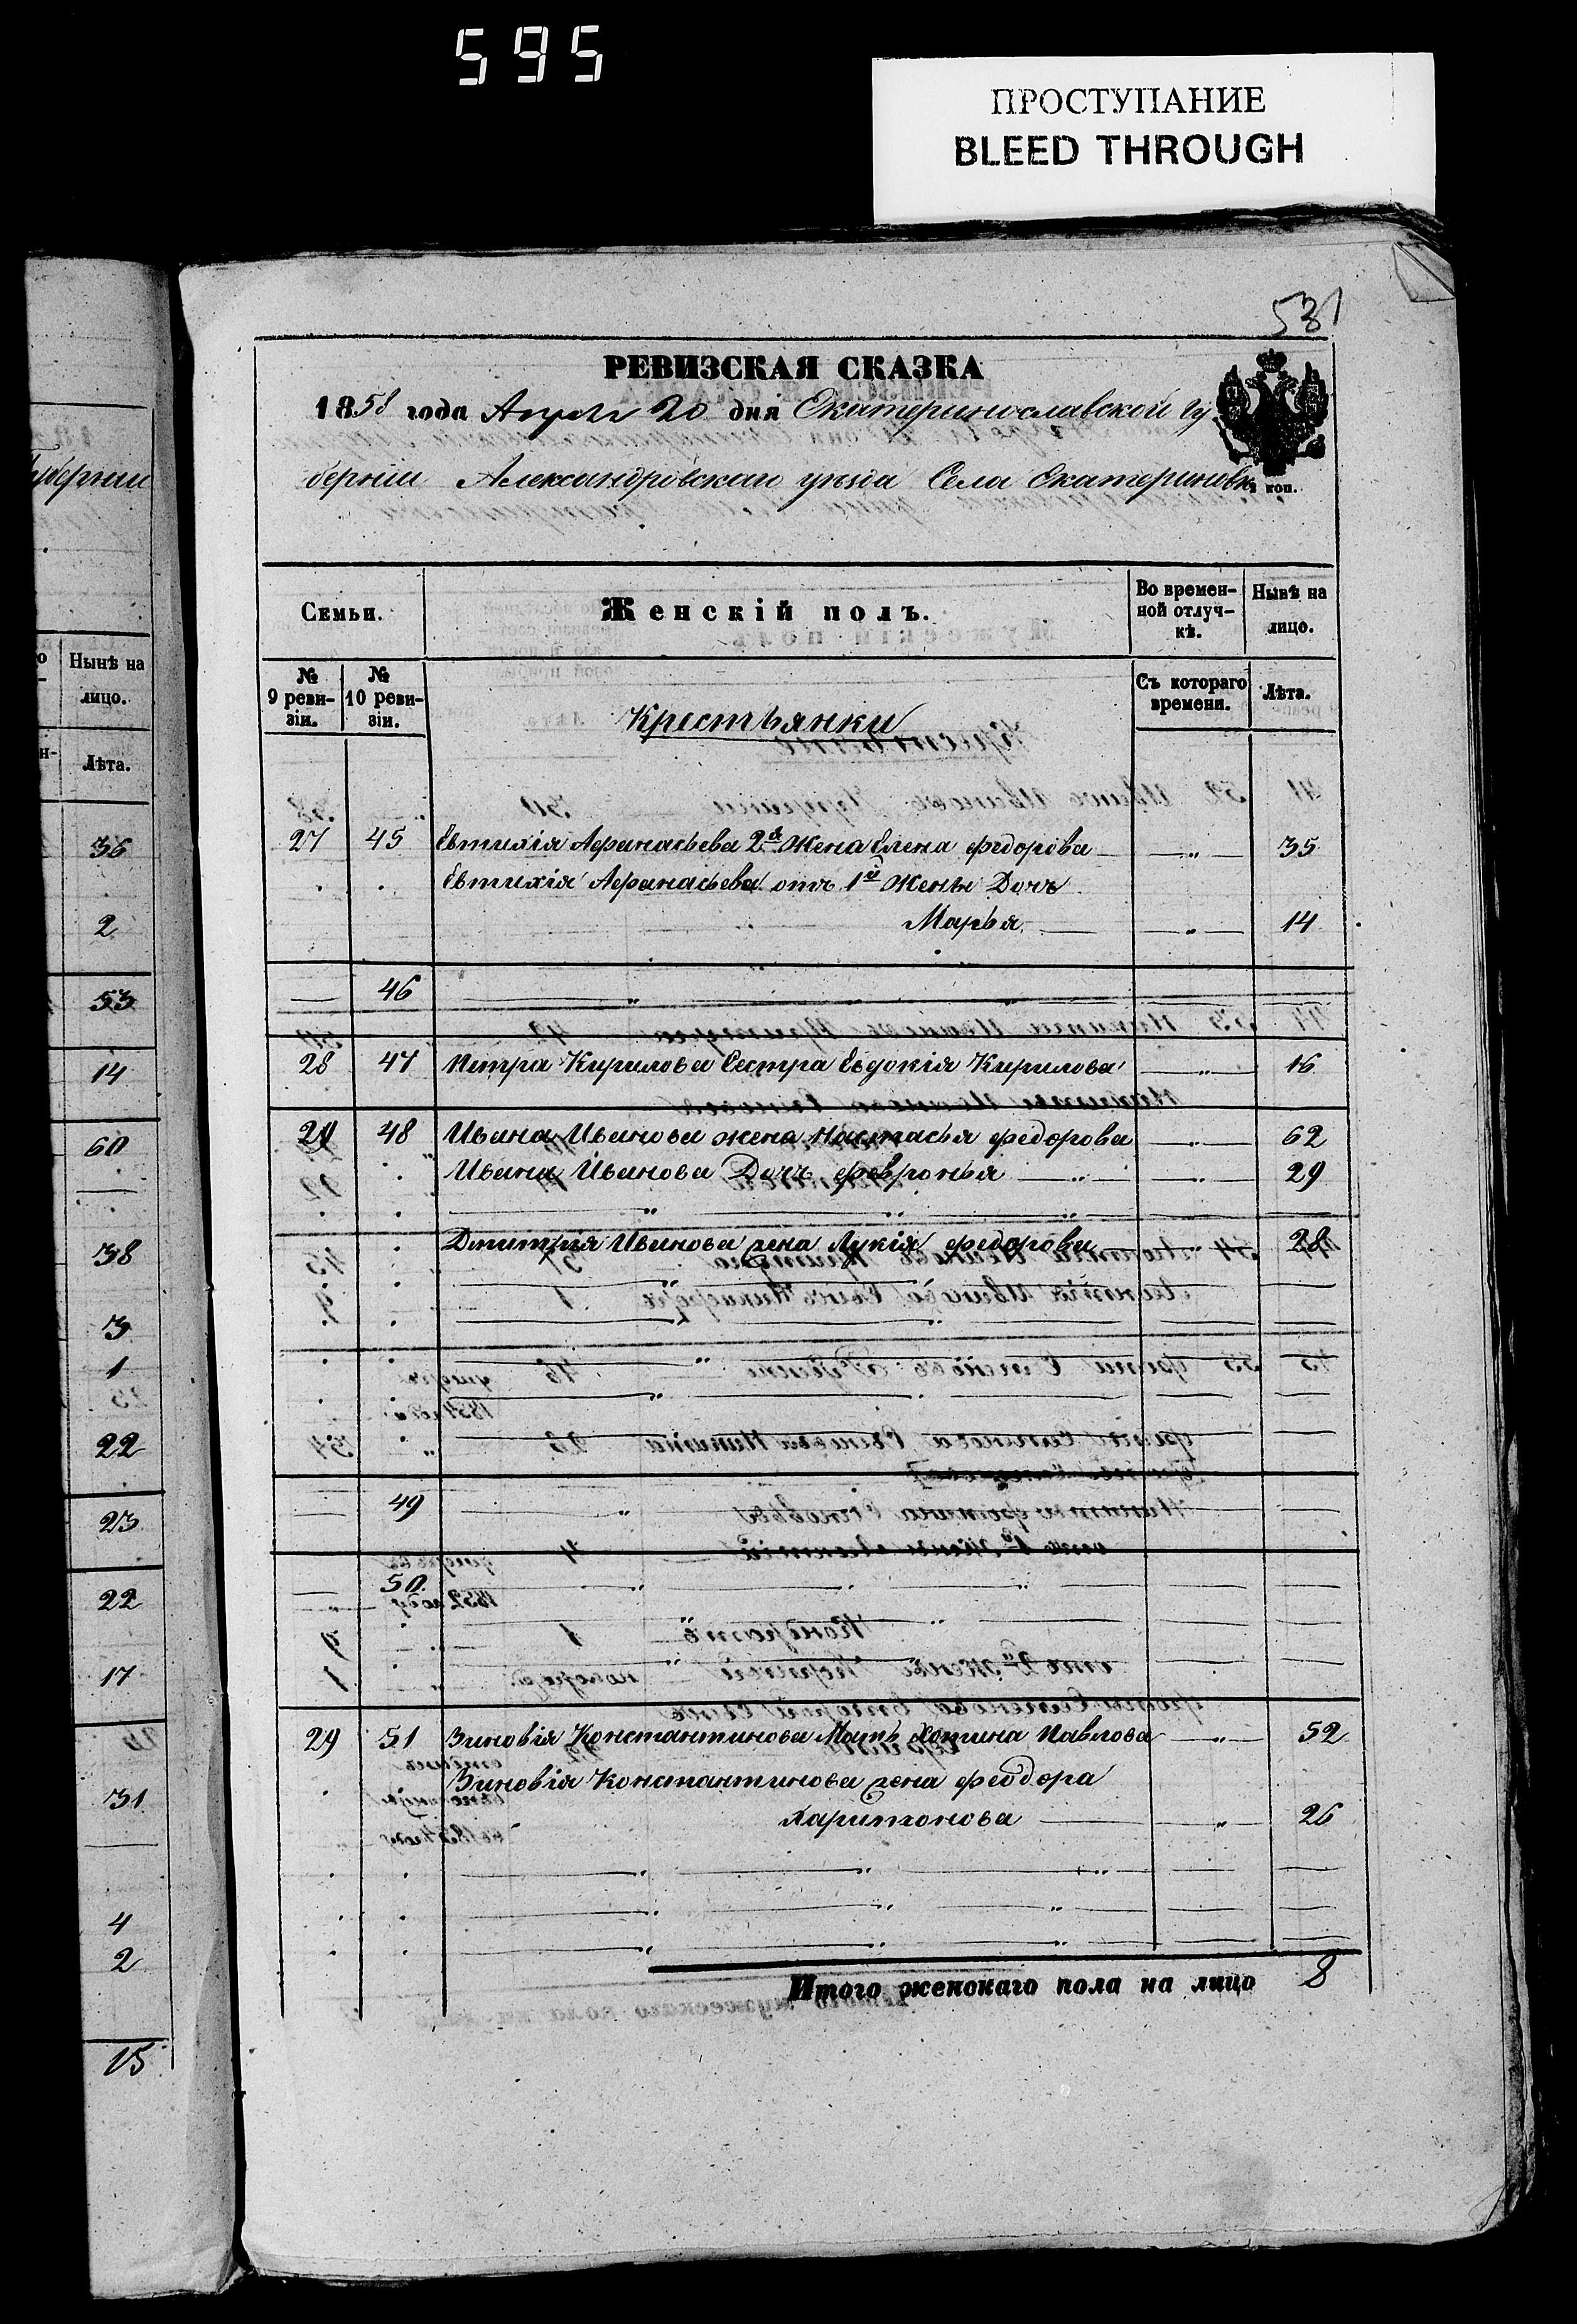 595
ПРОСТУПАНИЕ
BLEED THROUGH
531
РЕВИЗСКАЯ СКАЗКА
1858 года Апреля 20 дня Екатеринославской гу
берніи Александровскаго уезда Села Екатериновк
коп.
Семьи. Женскій полъ. Во времен- Нынѣ на
ной отлуч- лицо.
кѣ.
№ № Съ котораго Лѣта.
9 реви- 10 реви- времени.
зіи. зіи.
Крестьянки
27 45 Евтихія Афанасьева 2я Жена Елена федорова — „ — 35
Евтихія Афанасьева отъ 1й Жены Дочь
Марья — „ — 14
— 46 — „ —
28 47 Петра Кирилова Сестра Евдокія Кирилова — „ — 16
48 Ивана Иванова жена Настасья федорова — „ — 62
Ивана Иванова Дочь февронья — „ — 29
Дмитрія Иванова жена Лукія федорова 28
— 49 — „ —
— 50 — „ —
29 51 Зиновія Константинова Мать Хотина Павлова — „ — 52
Зиновія Константинова жена феодора
Харитонова — „ — 26
Итого женскаго пола на лицо 8
губерніи
Нынѣ на
лицо.
Лѣта.
36
2
53
14
60
38
3
1
22
23
22
17
31
4
2
15